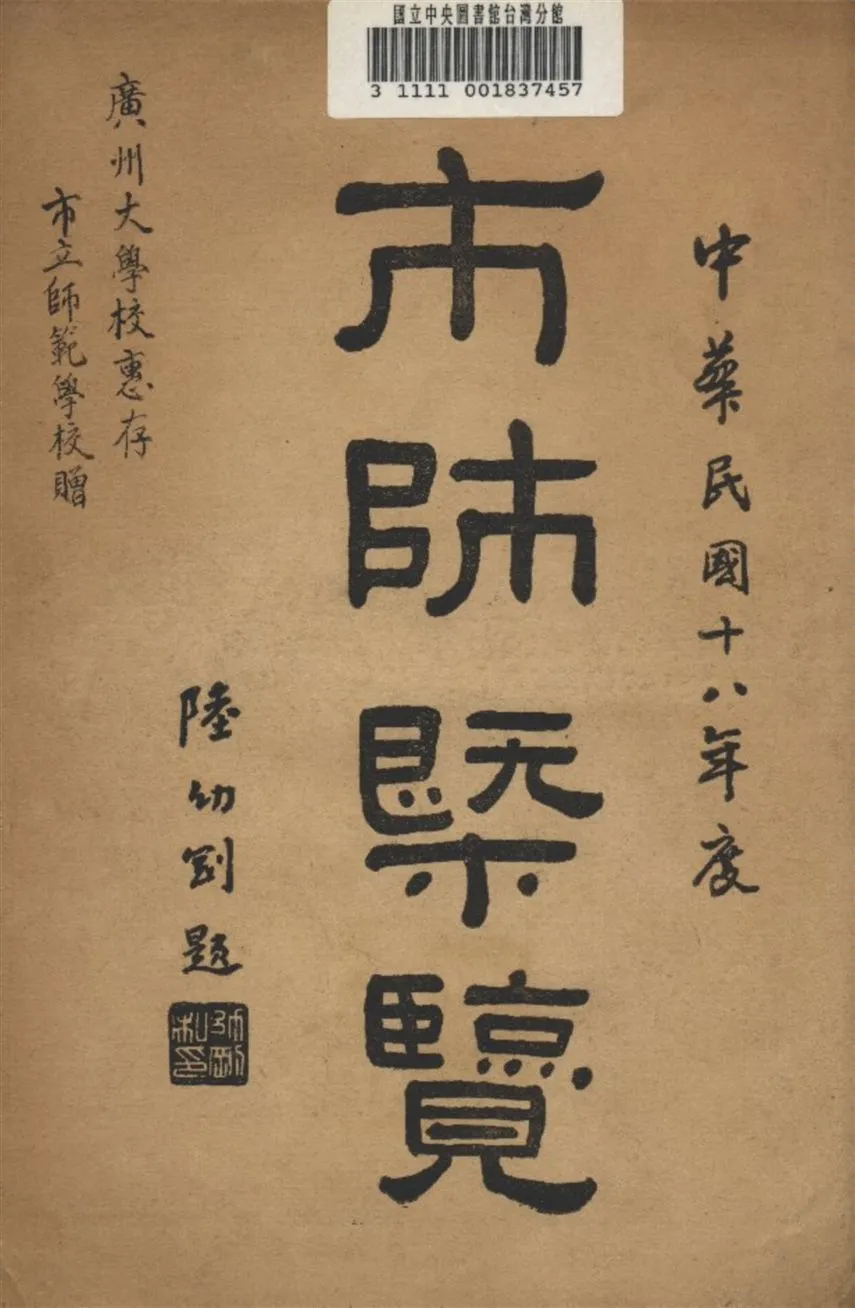 國立中央圖書館台灣分館
3 1111 001837457
中華民國十八年度
市師槩覽
陸幼刚題
廣州大學校惠存
市立師範學校贈